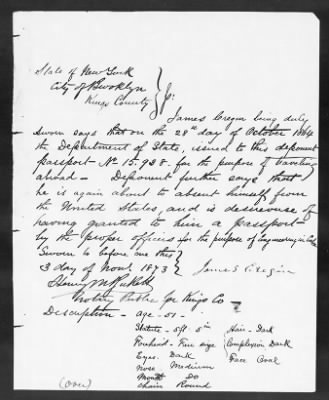 State of New York
City of Brooklyn
Kings County } ss:
James Cregin being duly
sworn says that on the 28th day of October 1864
the Department of State, issued to this deponent
passport No 15.938. for the purpose of traveling
abroad - Deponent further says that
he is again about to absent himself from
the United States, and is desireouse of
having granted to him a passport -
by the proper officers for the purpose of engineering in
Sworn to before me this
3 day of Novr. 1873 } James Cregin
Henry
Notary Public for Kings Co
Description - age - 51 -
Stature - 5ft. 5in Hair - Dark
Forehead - Fair size Complexion Dark
Eyes. Dark Face Oval
Nose Medium
Mouth Do
Chain Round
(over)